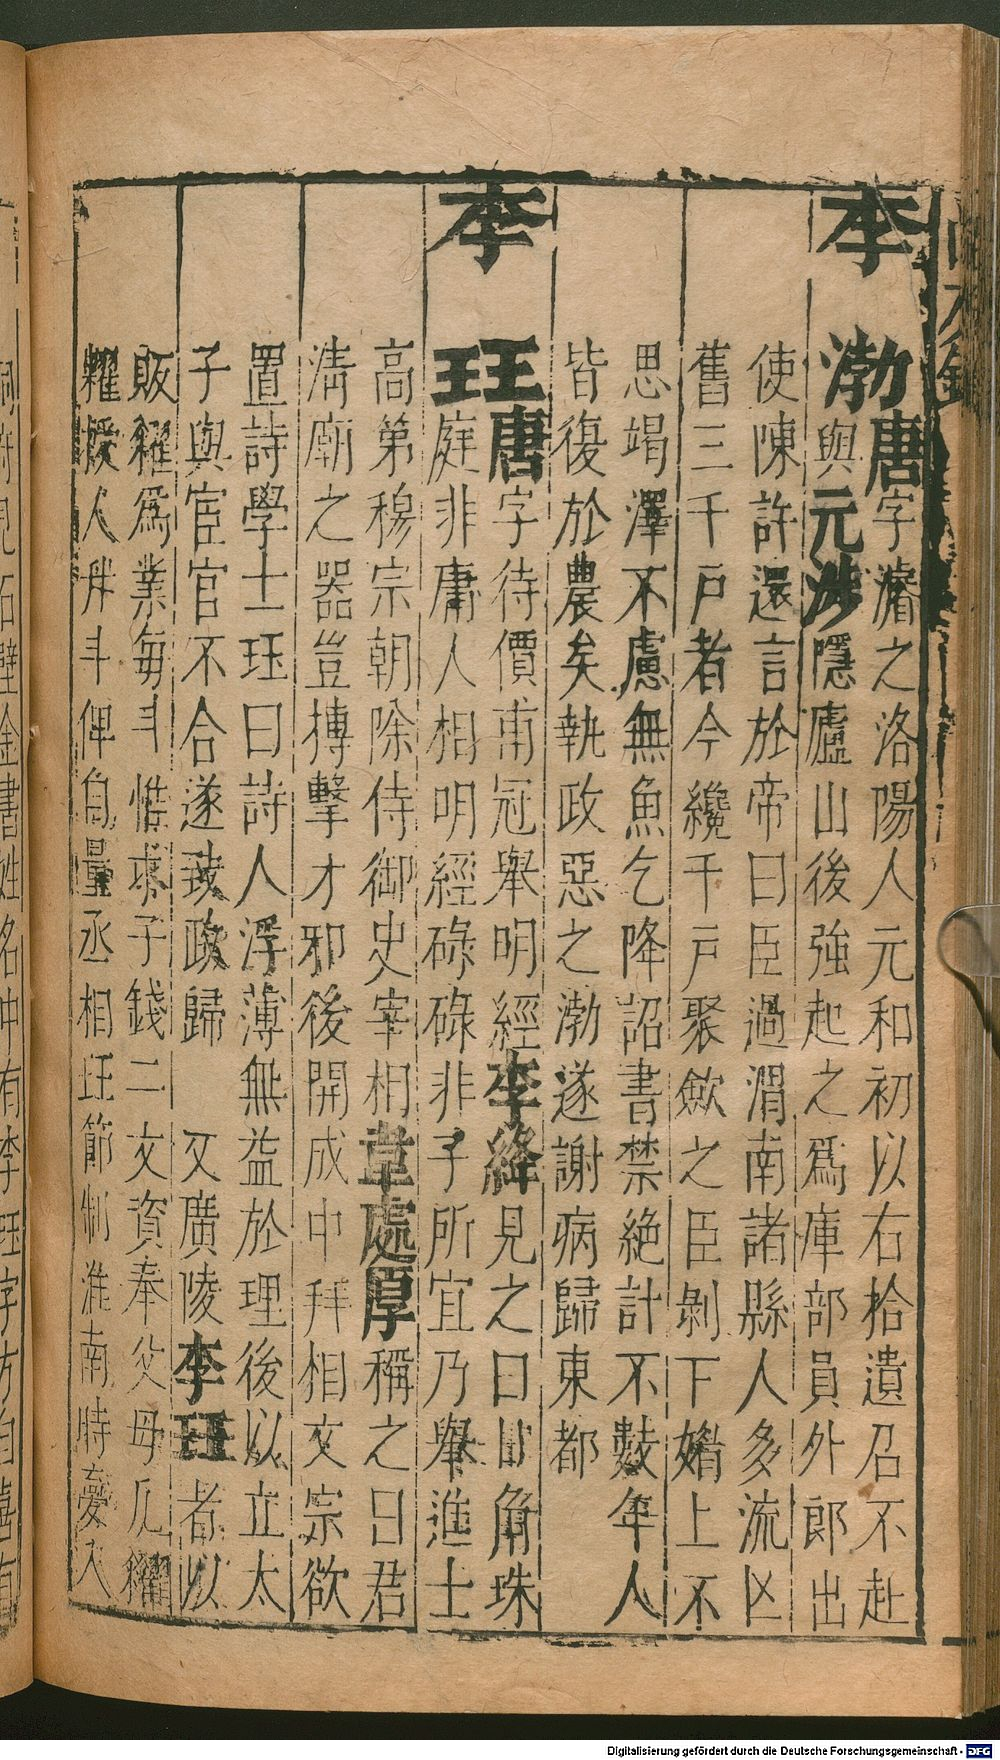 李渤唐字濬之洛陽人元和初以右拾遺召不赴
與元涉隱廬山後強起之爲庫部員外郎出
使陳許還言於帝曰臣過渭南諸縣人多流亡
舊三千戸者今纔千戸聚歛之臣剝下媚上不
思竭澤不慮無魚乞降詔書禁絕計不數年人
皆復於農矣執政惡之渤遂謝病歸東都
李珏唐字待價甫冠舉明經李絳見之曰日角珠
庭非庸人相明經碌碌非子所宜乃舉進士
高第穆宗朝除侍御史宰相韋處厚稱之曰君
淸廟之器豈摶擊才邪後開成中拜相文宗欲
置詩學士珏曰詩人浮薄無益於理後以立太
子與宦官不合遂致政歸 又廣陵李珏者以
販糴爲業每斗惟求子錢二文資奉父母凡糴
糶授人升斗俾自量丞相珏節制淮南時夢入
洞府見石壁金書姓名中有李珏字方自喜有
Digitalisierung gefördert durch die Deutsche Forschungsgemeinschaft - DFG